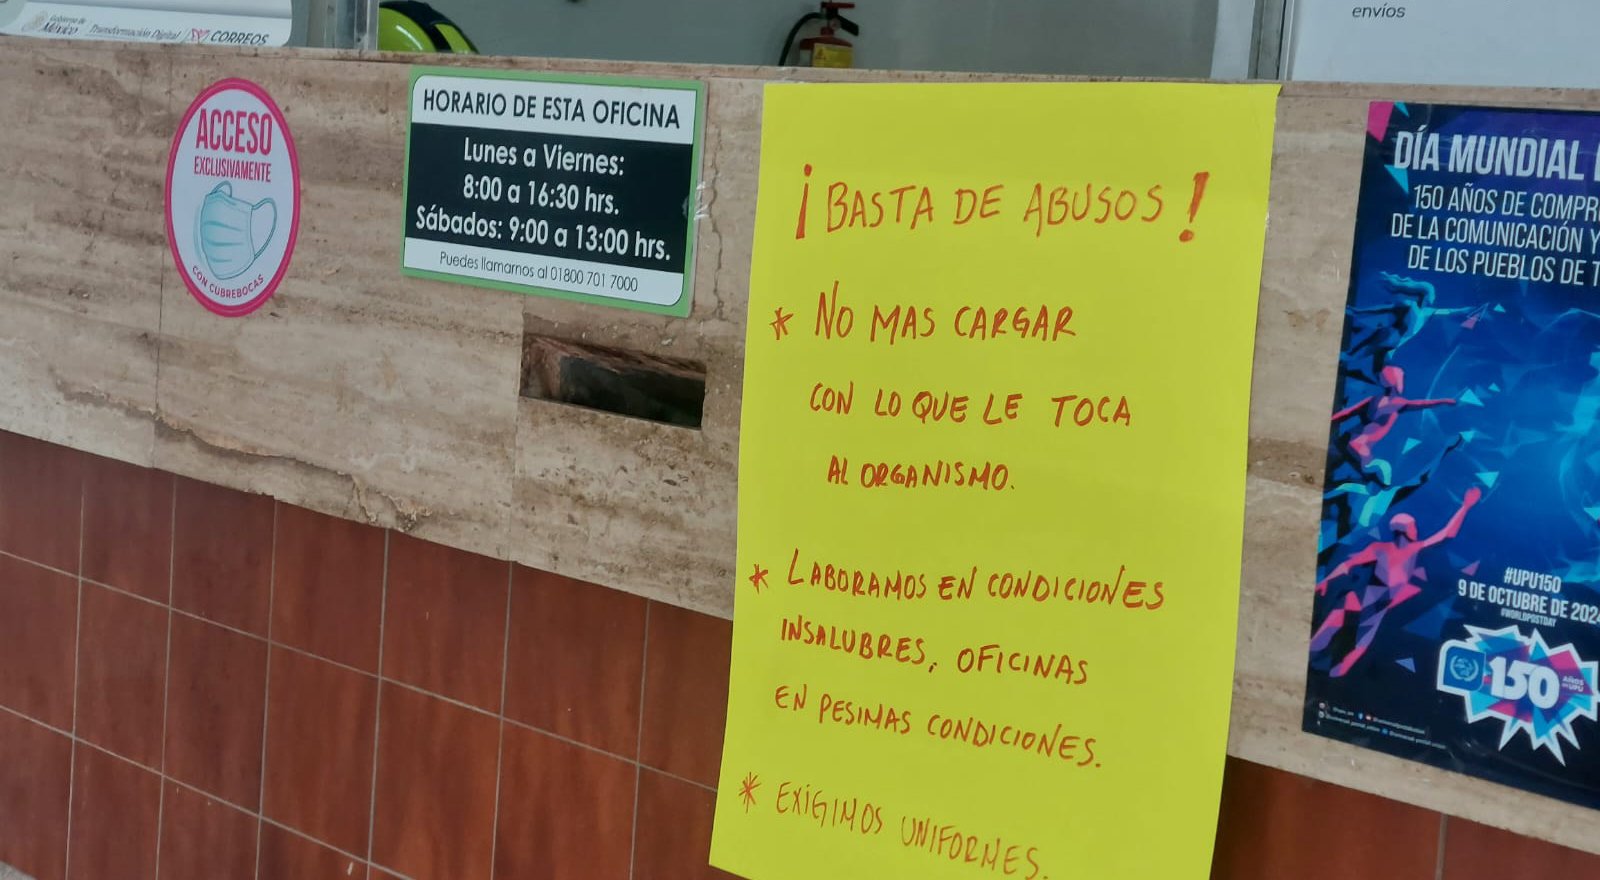 Gobierno de
México
Transformación Digital
CORREOS
envíos
ACCESO
EXCLUSIVAMENTE
CON CUBREBOCAS
HORARIO DE ESTA OFICINA
Lunes a Viernes:
8:00 a 16:30 hrs.
Sábados: 9:00 a 13:00 hrs.
Puedes llamarnos al 01800 701 7000
¡BASTA DE ABUSOS!
* NO MAS CARGAR
CON LO QUE LE TOCA
AL ORGANISMO.
* LABORAMOS EN CONDICIONES
INSALUBRES, OFICINAS
EN PESIMAS CONDICIONES.
* EXIGIMOS UNIFORMES.
DÍA MUNDIAL
150 AÑOS DE COMPR
DE LA COMUNICACIÓN Y
DE LOS PUEBLOS DE T
#UPU150
9 DE OCTUBRE DE 2024
#WORLDPOSTDAY
150 AÑOS